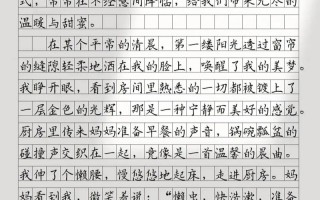 式，常常在不经意间降临，给我们带来无尽的
温暖与甜蜜。
在某个平常的清晨，第一缕阳光透过窗帘
的缝隙轻柔地洒在我的脸上，唤醒了我的美梦。
我睁开眼，看到房间里熟悉的一切都被镀上了
一层金色的光辉，那是一种宁静而美好的感觉。
厨房里传来妈妈准备早餐的声音，锅碗瓢盆的
碰撞声交织在一起，竟像是一首温馨的晨曲。
我伸了个懒腰，慢悠悠地起床，走进厨房。妈
妈看到我，微笑着说：“懒虫，快洗漱，准备